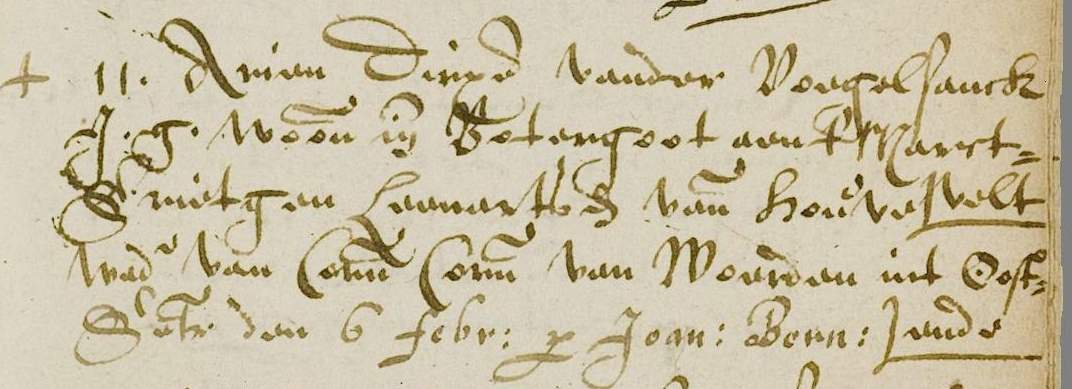 + 11. Arien Dirxs vander Voegelsanck
J. g. woon in Botergoot aent Marct-
Grietgen Leenarts van Houvesvelt
wed van Corn Corn van Woerden int Oost-
Getr den 6 febr: p Joan: Bern: | ende